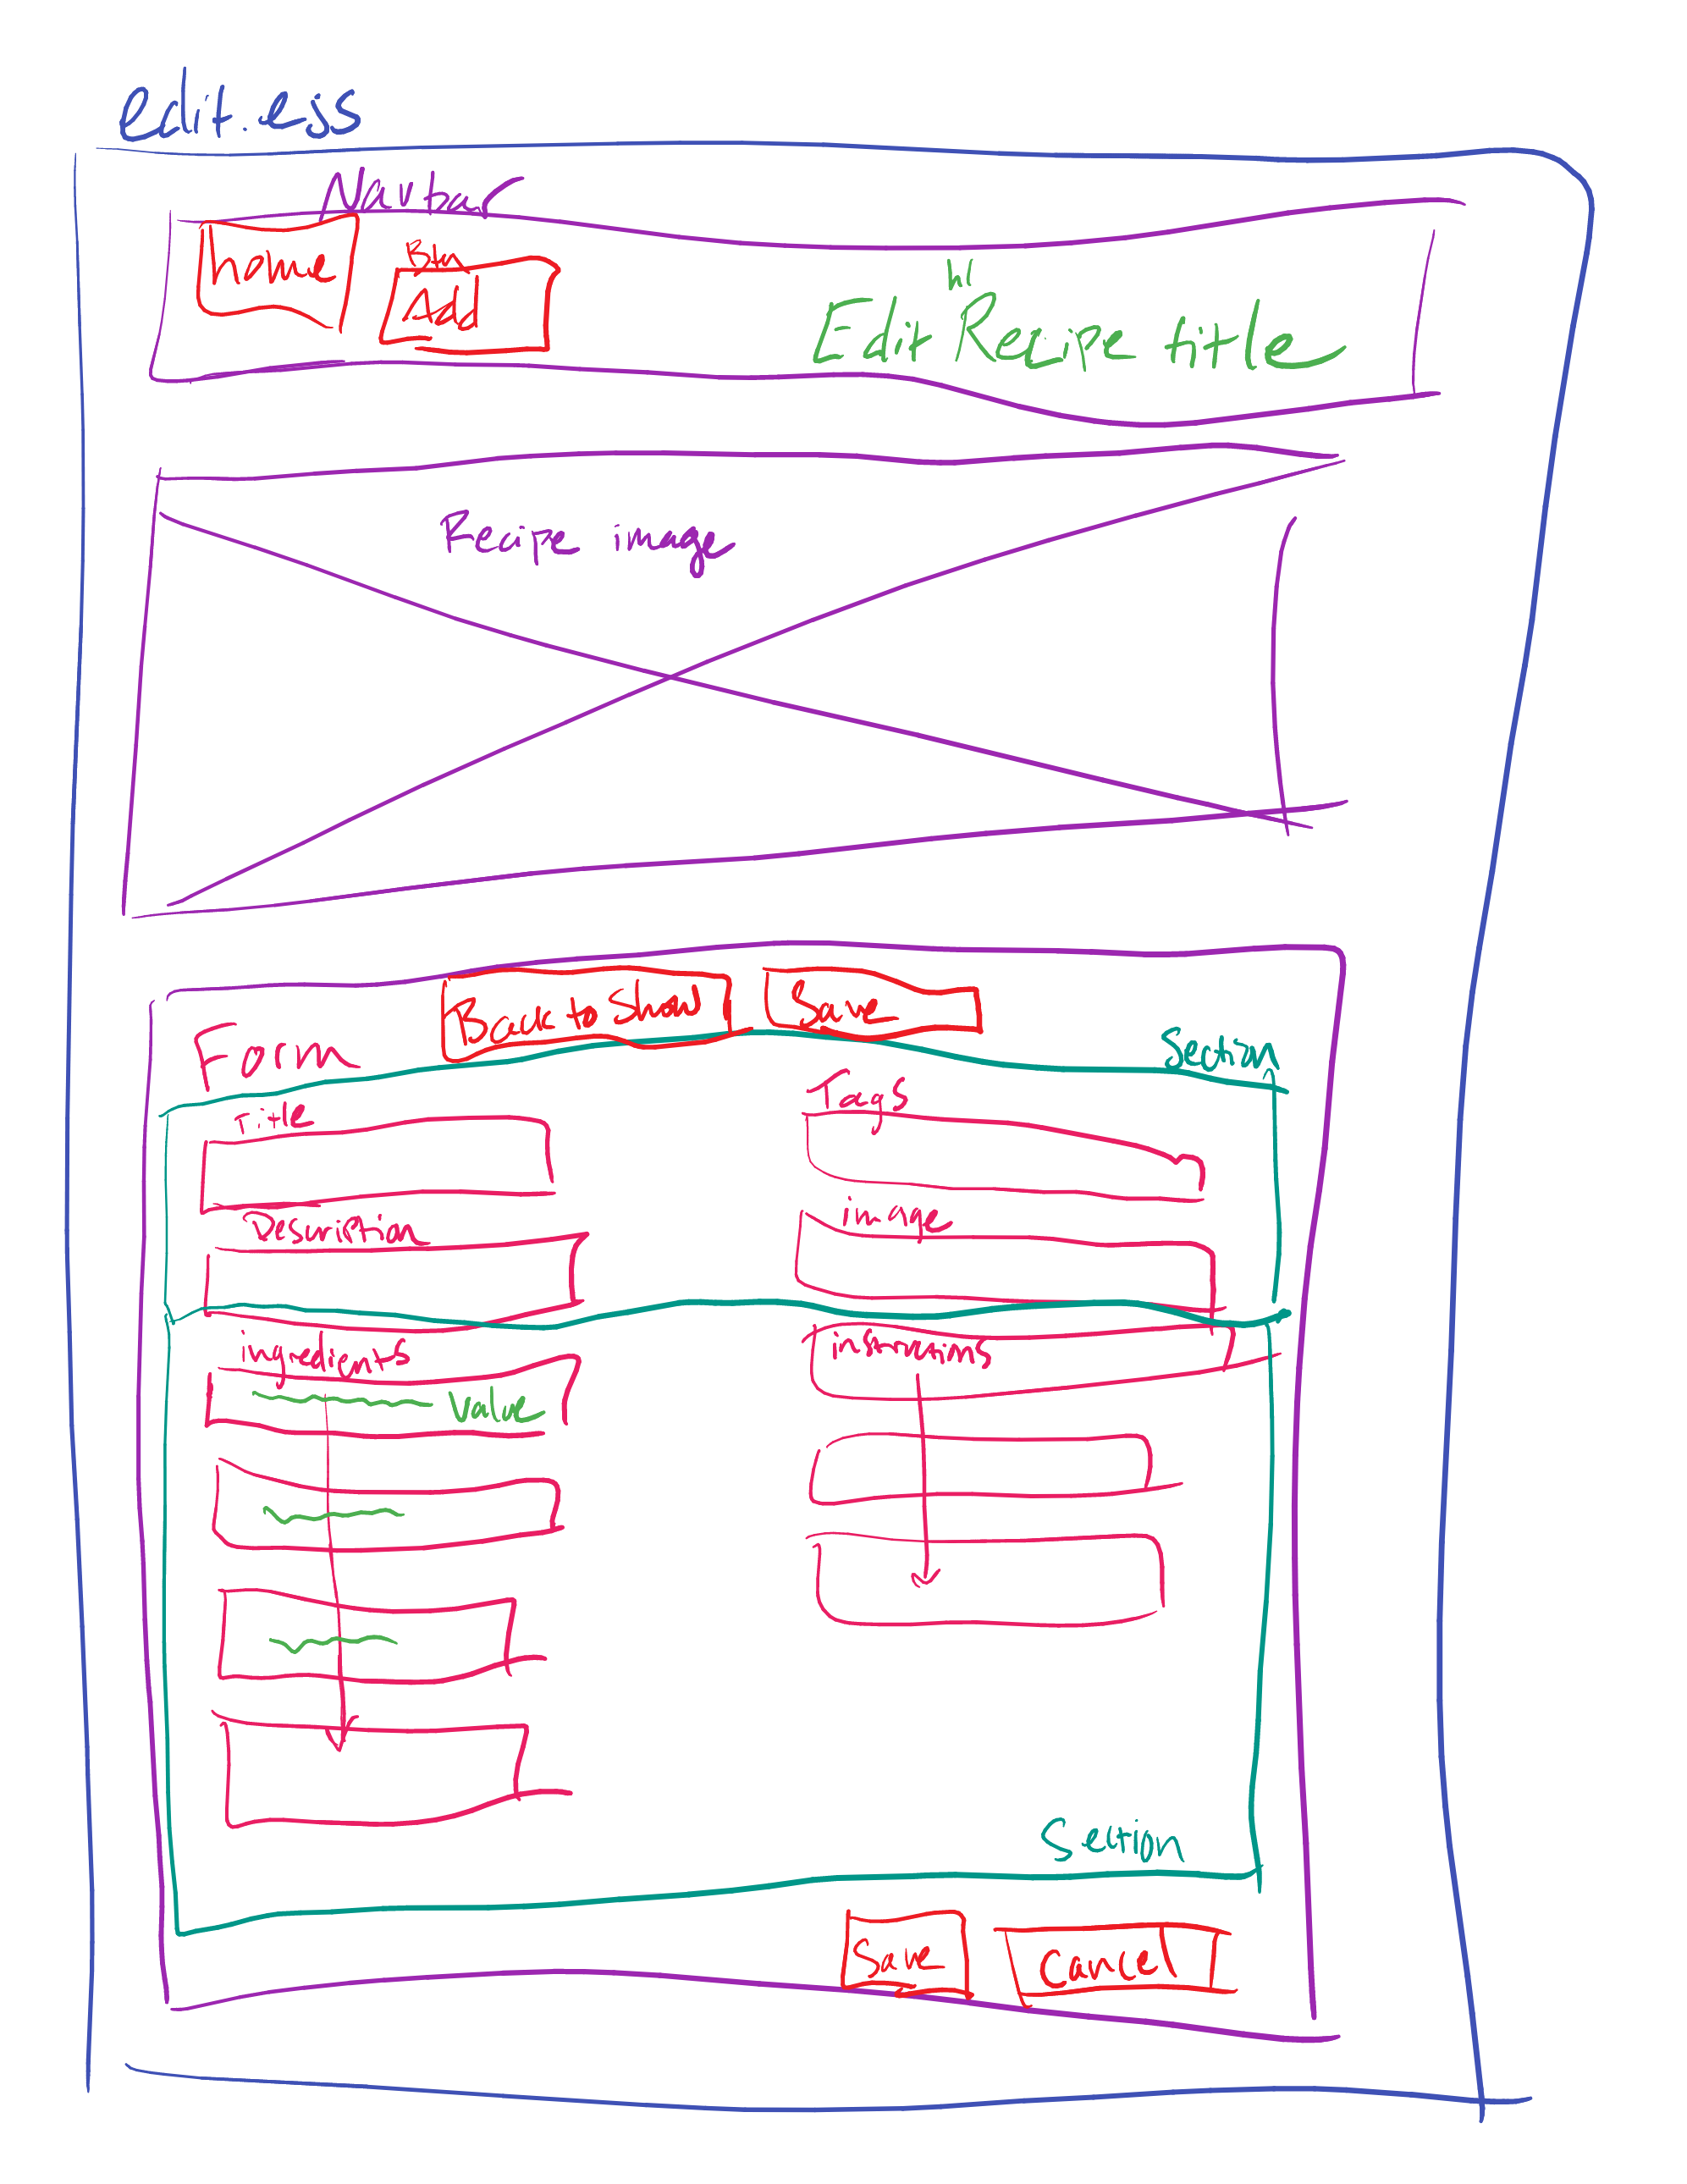 edit.ejs
Navbar
home
Btn
Add
h1
Edit Recipe title
Recipe image
Back to Show
Save
Form
Section
Title
Tags
Description
image
ingredients
instructions
Value
Section
Save
Cancel